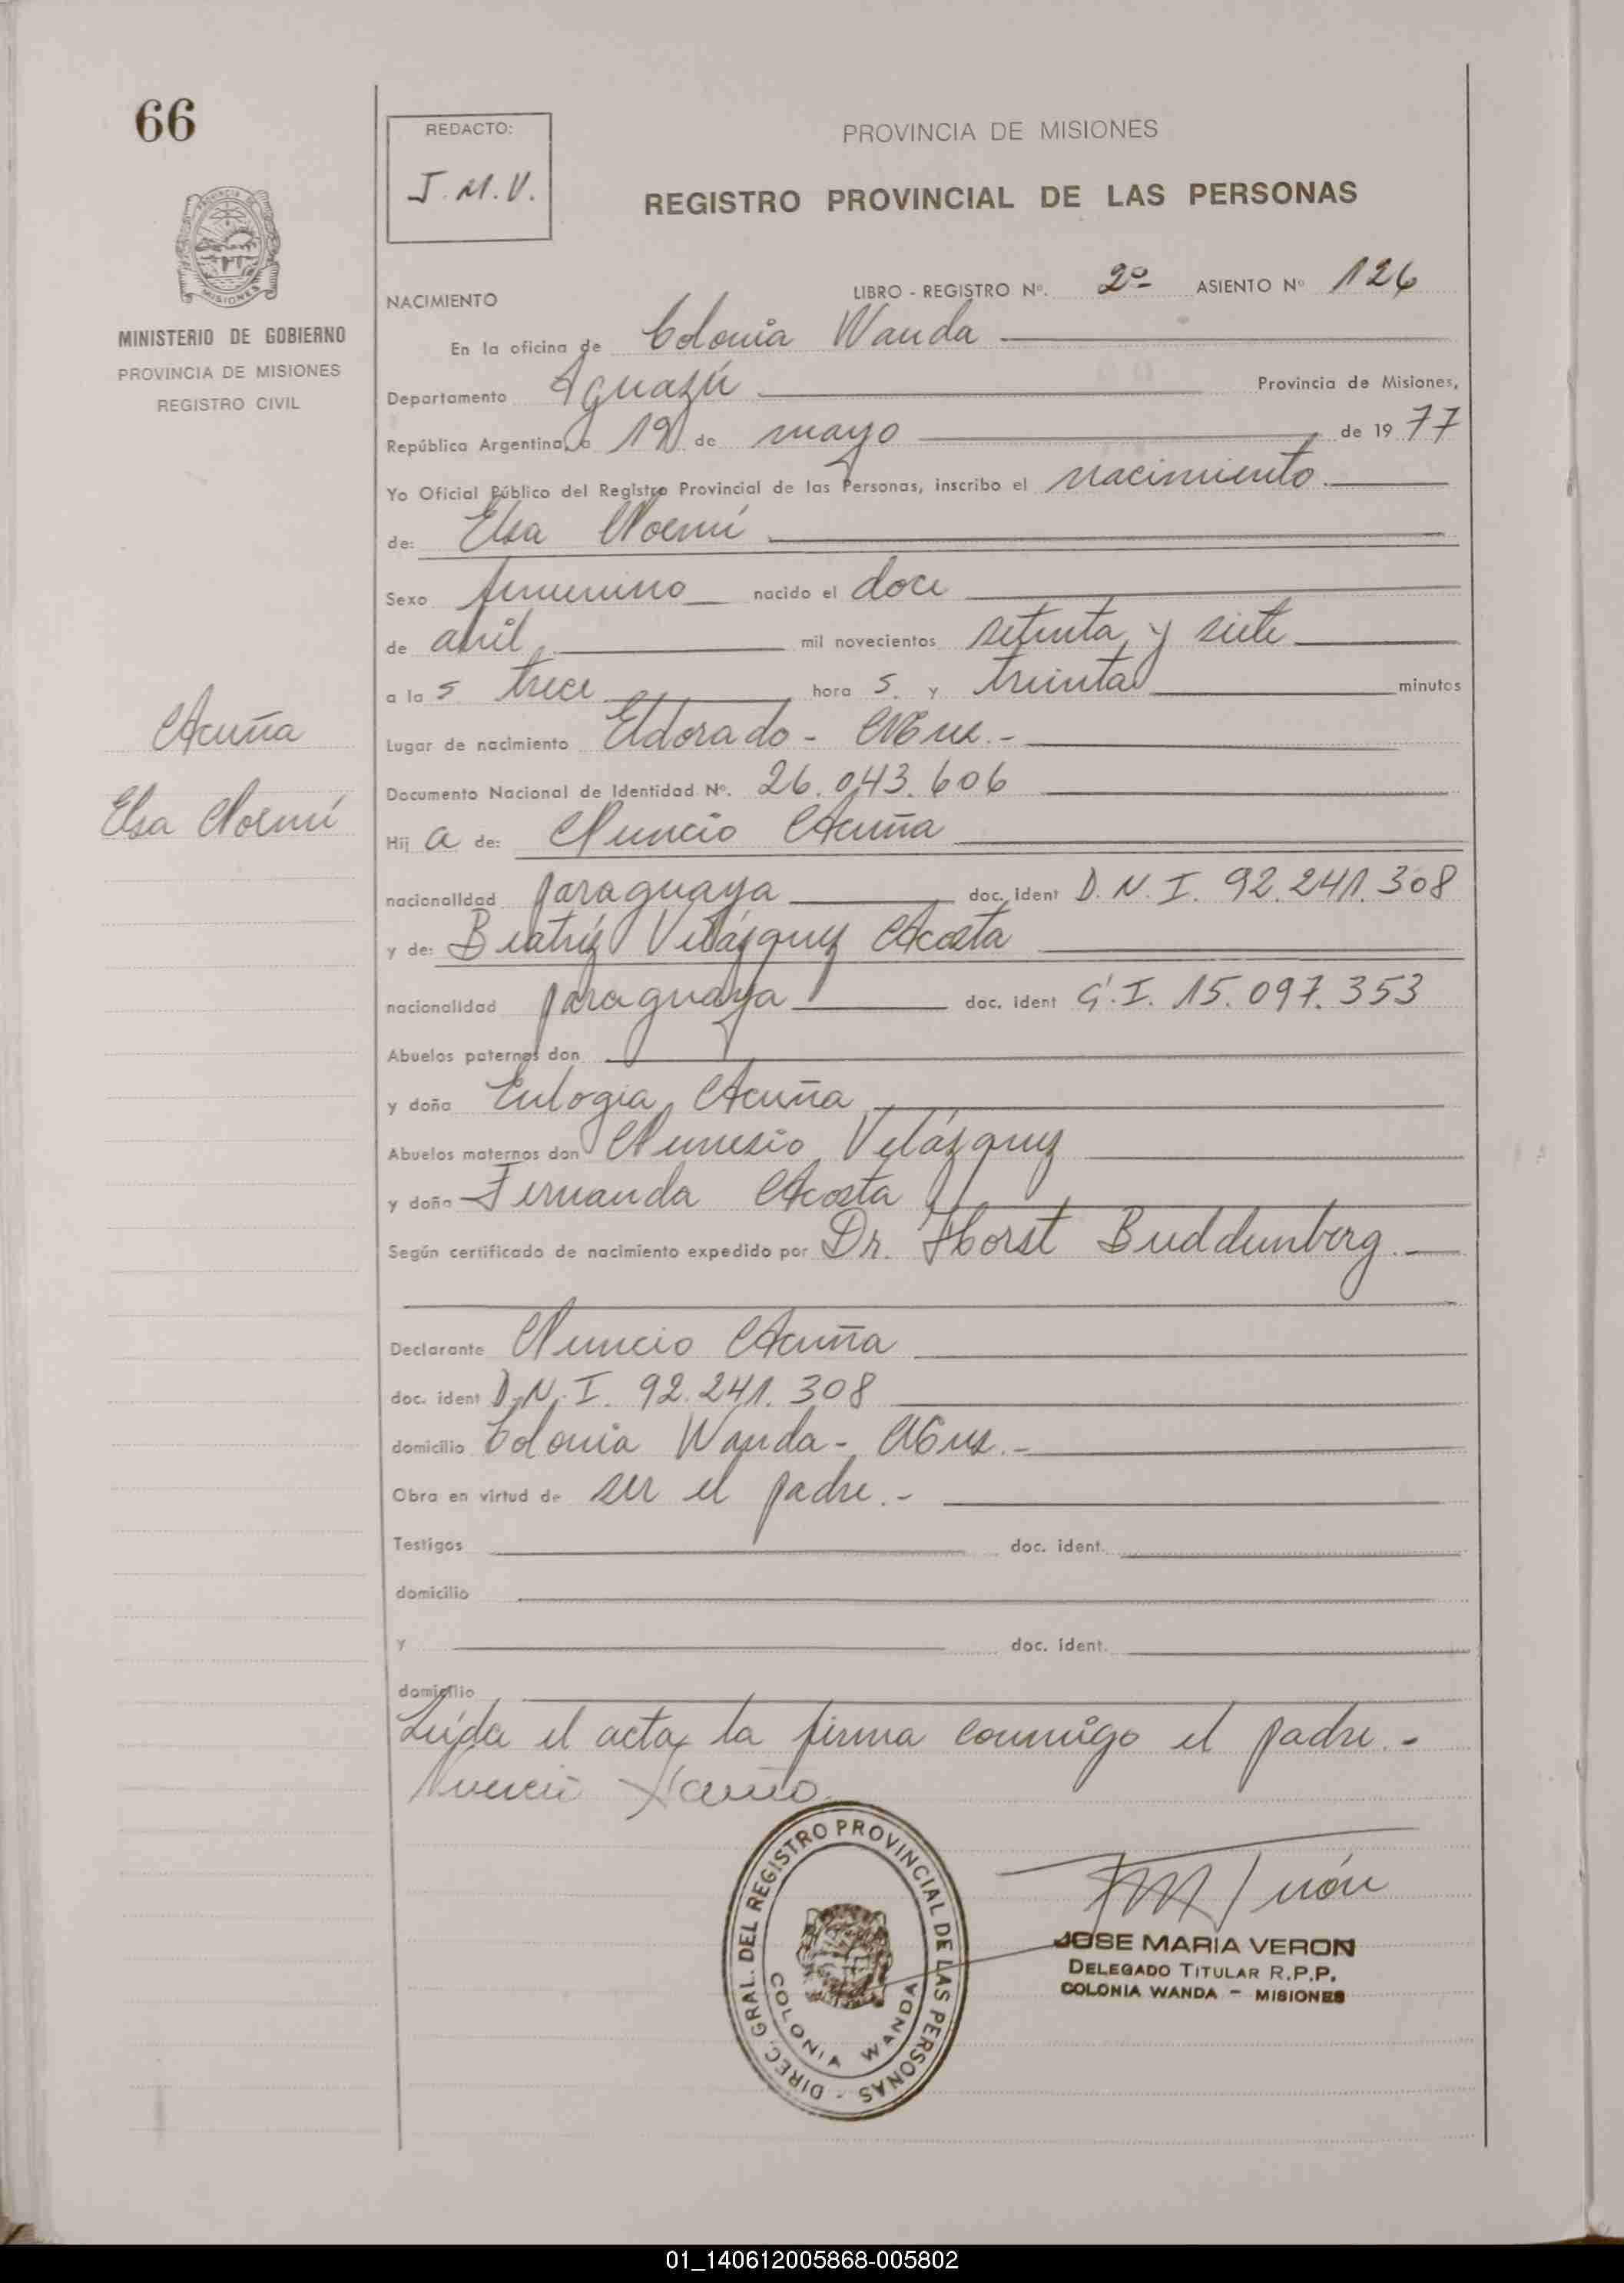 66
MINISTERIO DE GOBIERNO
PROVINCIA DE MISIONES
REGISTRO CIVIL
Acuña
Elsa Noemí
REDACTO:
J.M.V.
PROVINCIA DE MISIONES
REGISTRO PROVINCIAL DE LAS PERSONAS
NACIMIENTO
LIBRO - REGISTRO Nº. 2º ASIENTO Nº 126
En la oficina de Colonia Wanda
Departamento Iguazú Provincia de Misiones,
República Argentina, a 19 de mayo de 1977
Yo Oficial Público del Registro Provincial de las Personas, inscribo el nacimiento
de: Elsa Noemí
Sexo femenino nacido el doce
de abril mil novecientos setenta y siete
a la s trece hora s. y treinta minutos
Lugar de nacimiento Eldorado - Mnes.-
Documento Nacional de Identidad Nº. 26.043.606
Hij a de: Nuncio Acuña
nacionalidad paraguaya doc. ident D.N.I. 92.241.308
y de: Beatriz Velázquez Acosta
nacionalidad paraguaya doc. ident C.I. 15.097.353
Abuelos paternos don
y doña Eulogia Acuña
Abuelos maternos don Nemesio Velázquez
y doña Fernanda Acosta
Según certificado de nacimiento expedido por Dr. Horst Buddenberg.
Declarante Nuncio Acuña
doc. ident D.N.I. 92.241.308
domicilio Colonia Wanda - Mnes.-
Obra en virtud de ser el padre.-
Testigos doc. ident.
domicilio
y doc. ident.
domicilio
Leída el acta, la firma conmigo el padre.-
Nuncio Acuña
DIREC. GRAL. DEL REGISTRO PROVINCIAL DE LAS PERSONAS -
COLONIA WANDA
JOSE MARIA VERON
DELEGADO TITULAR R.P.P.
COLONIA WANDA - MISIONES
01_140612005868-005802